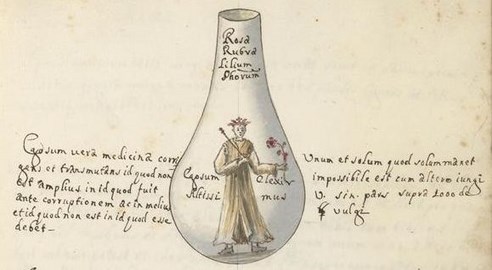 Rosa
Rubra
Lilium
Phorum
Egosum vera medicina corri
gens et transmutans id quod non
est amplius in id quod fuit
ante corruptionem ac in melius
et id quod non est in id quod esse
debet
Egosum Elexir
Altissi mus
Unum et solum quod solom manet
impossibile est cum altero iungi
V. six. pars supra 1000 de
vulgi